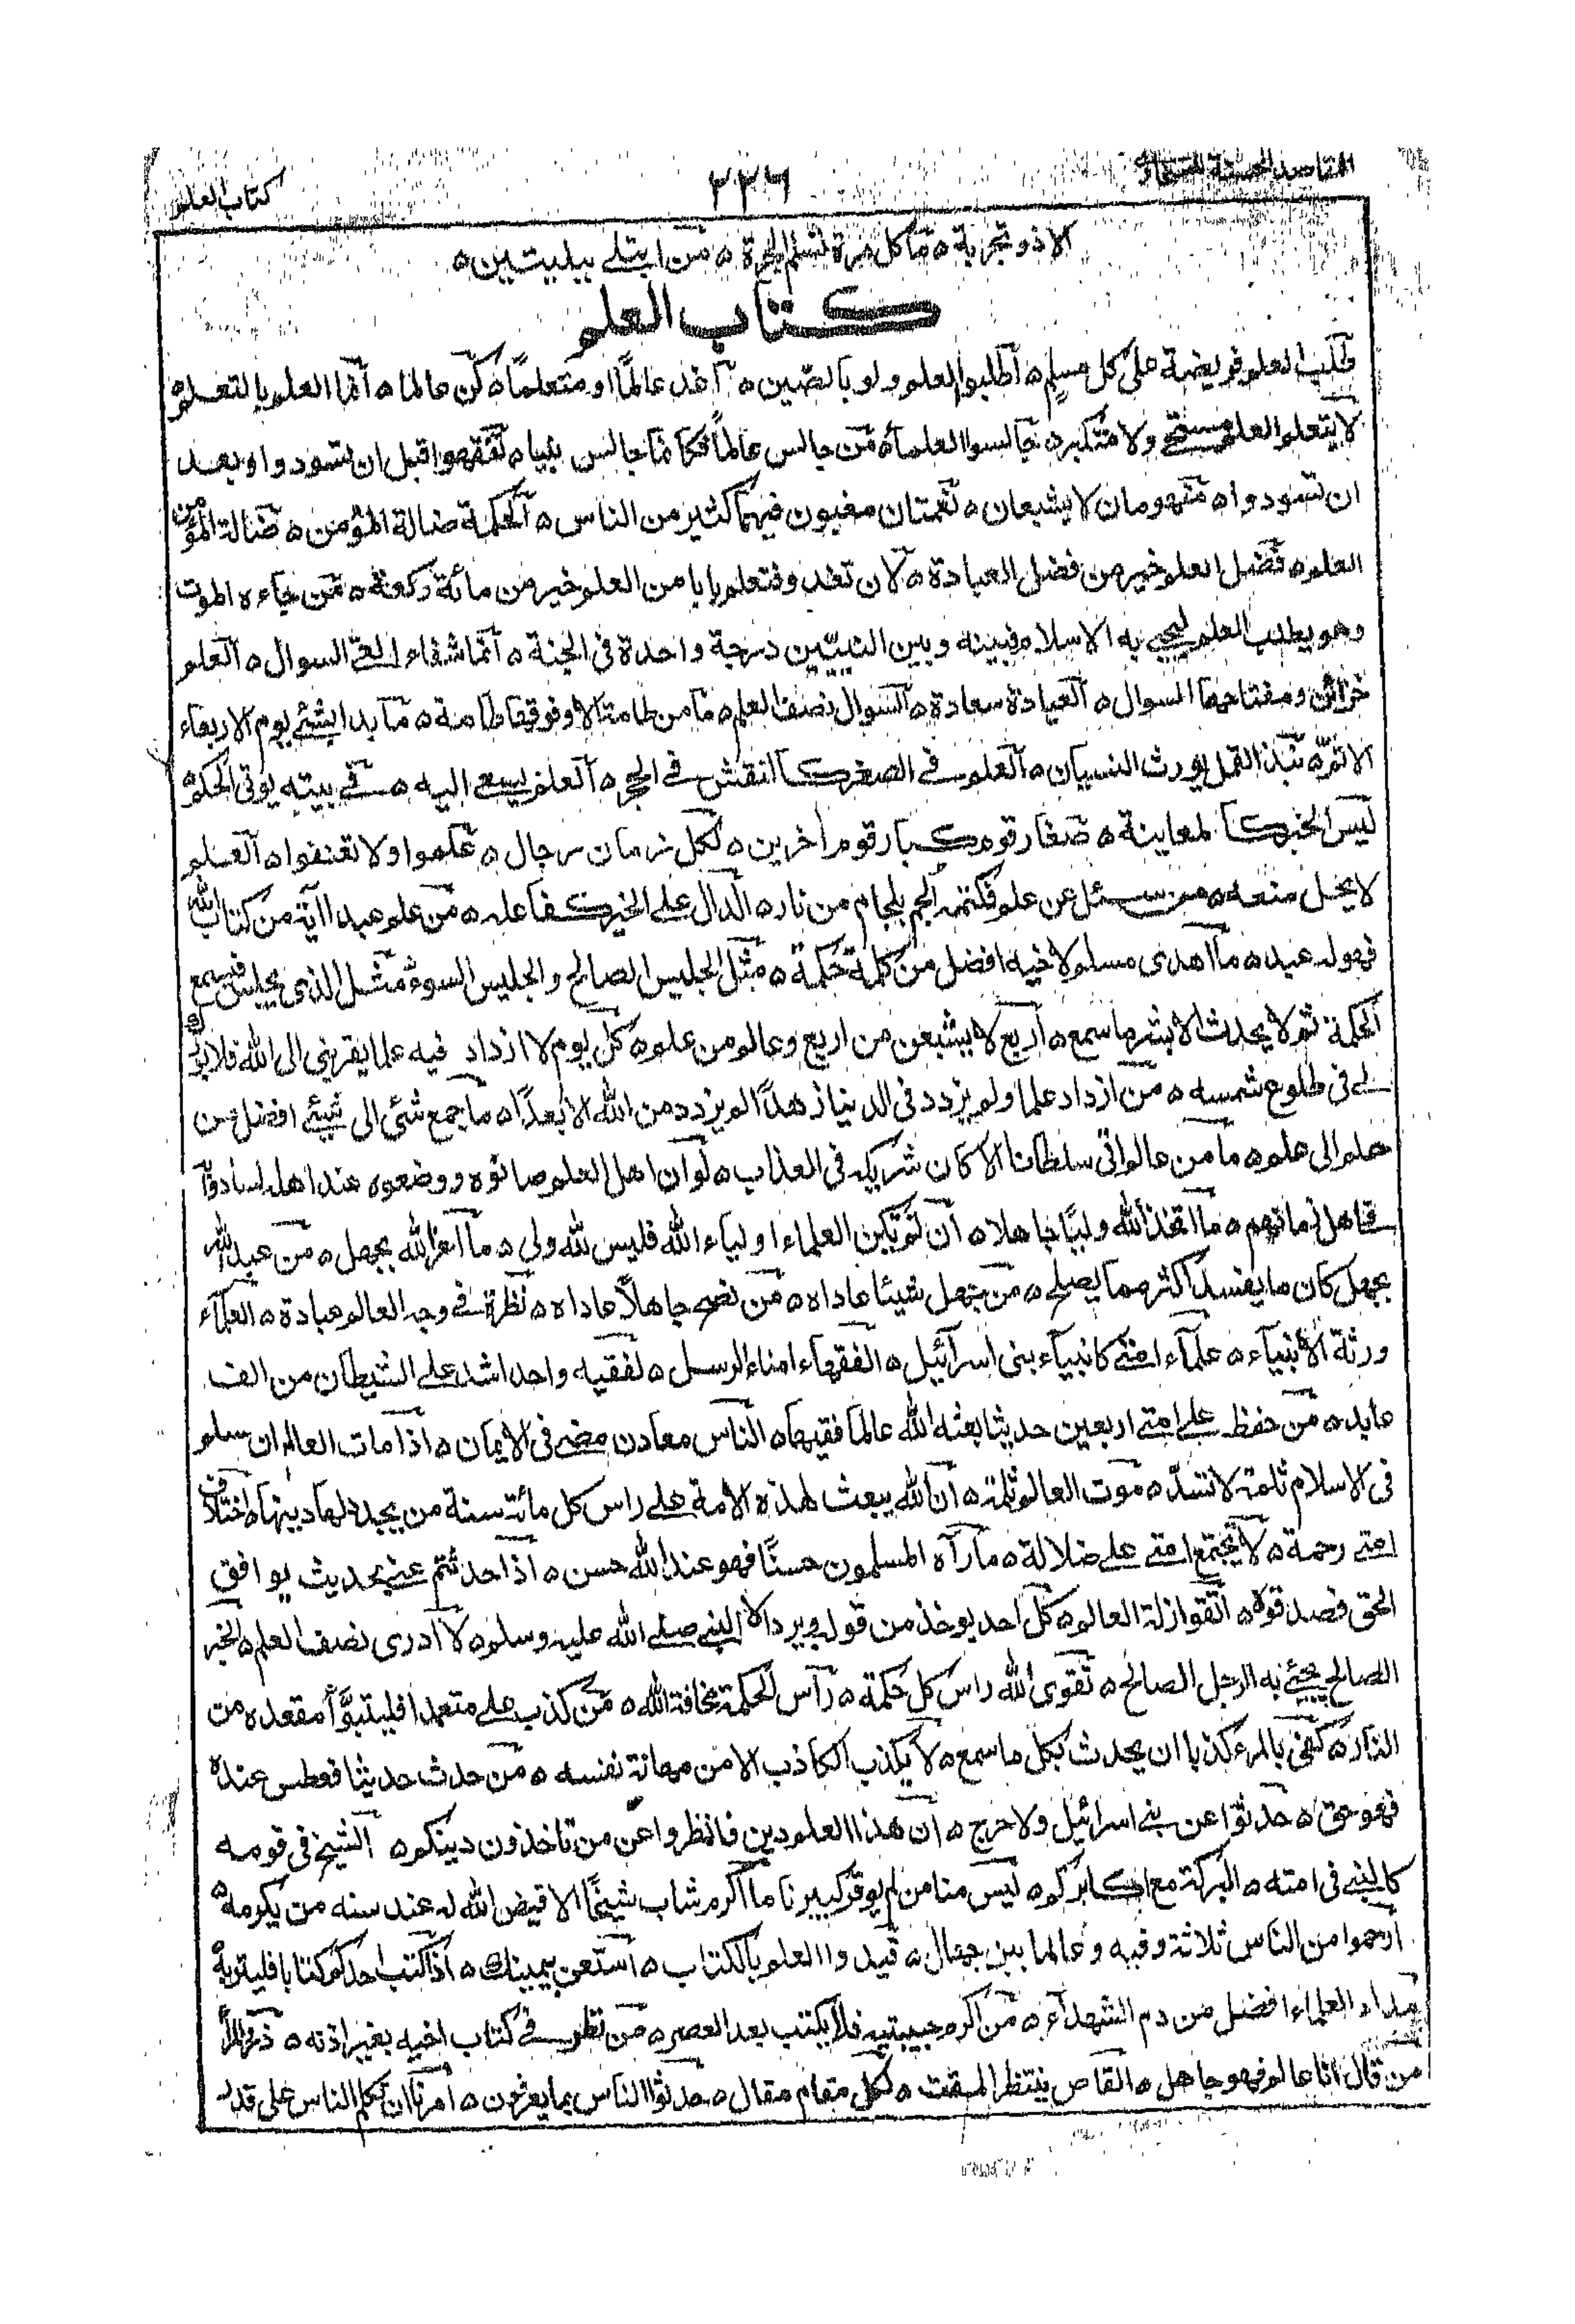 المقاصد الحسنة للسخاوى
٢٣٦
كتاب العلم
الا ذو تجربة ه ما كل مرة تسلم الجرة ه من ابتلے ببليتين ه
كتاب العلم
طلب العلم فريضة على كل مسلم ه اطلبوا العلم ولو بالصين ه اغد عالمًا او متعلمًا ه كن عالما ه انما العلم بالتعلم ه
لا يتعلم العلم مستحے ولا متكبر ه جالسوا العلماء ه من جالس عالمًا فكانما جالس نبيا ه تفقهوا قبل ان تسودوا وبعد
ان تسودوا ه منهومان لا يشبعان ه نعمتان مغبون فيهما كثير من الناس ه الحكمة ضالة المؤمن ه ضالة المؤمن
العلم ه فضل العلم خير من فضل العبادة ه لان تغدو فتعلم بابا من العلم خير من مائة ركعة ه من جاءه الموت
وهو يطلب العلم ليحيے به الاسلام فبينه وبين النبيّين درجة واحدة فى الجنة ه انما شفاء العے السوال ه العلم
خزائن ومفتاحها السوال ه العيادة سعادة ه السوال نصف العلم ه ما من طامة الا وفوقها طامة ه ما بدا بشئے يوم الاربعاء
الا تمّ ه نبذ القمل يورث النسيان ه العلم فے الصغر كالنقش فے الحجر ه العلم يسعے اليه ه فے بيته يوتى الحكم ه
ليس الخبر كالمعاينة ه صغار قوم كبار قوم اخرين ه لكل زمان رجال ه علموا ولا تعنفوا ه العلم
لا يحل منعه ه من سئل عن علم فكتمه الجم بلجام من نار ه الدال علے الخير كفاعله ه من علم عبدا آية من كتاب الله
فهو له عبد ه ما اهدى مسلم لاخيه افضل من كلمة حكمة ه مثل الجليس الصالح والجليس السوء ه مثل الذى يجلس فيسمع
الحكمة ثم لا يحدث الا بشر ما سمع ه اربع لا يشبعن من اربع وعالم من علم ه كل يوم لا ازداد فيه علما يقربنى الى الله فلا بورك
لے فى طلوع شمسه ه من ازداد علما ولم يزدد فى الدنيا زهدًا لم يزدد من الله الا بعدًا ه ما جمع شئ الى شيئے افضل من
حلم الى علم ه ما من عالم اتى سلطانا الا كان شريكه فى العذاب ه لو ان اهل العلم صانوه ووضعوه عند اهله لسادوا
به اهل زمانهم ه ما اتخذ الله وليًا جاهلا ه ان لم تكن العلماء اولياء الله فليس لله ولى ه ما اعز الله بجهل ه من عبد الله
بجهل كان ما يفسد اكثر مما يصلح ه من جهل شيئا عاداه ه من نصح جاهلًا عاداه ه نظرة فے وجه العالم عبادة ه العلماء
ورثة الانبياء ه علماء امتے كانبياء بنى اسرائيل ه الفقهاء امناء الرسل ه لفقيه واحد اشد علے الشيطان من الف
عابد ه من حفظ علے امتے اربعين حديثا بعثه الله عالما فقيها ه الناس معادن مضے فى الايمان ه اذا مات العالم انثلم
فى الاسلام ثلمة لا تسدّ ه موت العالم ثلمة ه ان الله يبعث لهذه الامة علے راس كل مائة سنة من يجدد لها دينها ه اختلاف
امتے رحمة ه لا تجتمع امتے علے ضلالة ه ما رآه المسلمون حسنًا فهو عند الله حسن ه اذا حدثتم عنے بحديث يوافق
الحق فصدقوه ه اتقوا زلة العالم ه كل احد يوخذ من قوله ويرد الا النبے صلے الله عليه وسلم ه لا ادرى نصف العلم ه الخبر
الصالح يجيئے به الرجل الصالح ه تقوى الله راس كل حكمة ه رأس الحكمة مخافة الله ه من كذب علے متعمدا فليتبوّأ مقعده من
النار ه كفى بالمرء كذبا ان يحدث بكل ما سمع ه لا يكذب الكاذب الا من مهانة نفسه ه من حدث حديثا فعطس عنده
فهو حق ه حدثوا عن بنے اسرائيل ولا حرج ه ان هذا العلم دين فانظروا عن من تاخذون دينكم ه الشيخ فى قومه
كالنبے فى امته ه البركة مع اكابركم ه ليس منا من لم يوقر كبيرنا ما اكرم شاب شيخًا الا قيض الله له عند سنه من يكرمه ه
ارحموا من الناس ثلاثة وفيه وعالما بين جهال ه قيدوا العلم بالكتاب ه استعن بيمينك ه اذا كتب احدكم كتابا فليتربه
مداد العلماء افضل من دم الشهداء ه من اكرم حبيبتيه فلا يكتب بعد العصر ه من نظر فے كتاب اخيه بغير اذنه ه
من قال انا عالم فهو جاهل ه القاص ينتظر المقت ه لكل مقام مقال ه حدثوا الناس بما يعرفون ه امرنا ان نكلم الناس على قدر